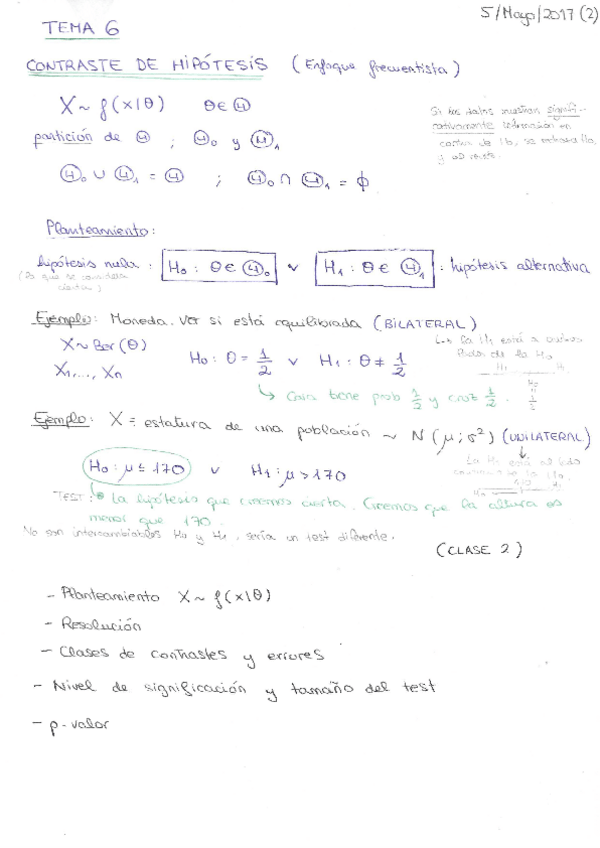 5/Mayo/2017 (2)
TEMA 6
CONTRASTE DE HIPÓTESIS (Enfoque frecuentista)
X ~ f(x|θ) θ ∈ Θ
partición de Θ ; Θ₀ y Θ₁
Θ₀ ∪ Θ₁ = Θ ; Θ₀ ∩ Θ₁ = ϕ
Si los datos muestran signifi-
cativamente información en
contra de H₀, se rechaza H₀,
Planteamiento:
hipótesis nula : H₀ : θ ∈ Θ₀ v H₁ : θ ∈ Θ₁ : hipótesis alternativa
(Lo que se considera
cierto)
Ejemplo: Moneda. Ver si está equilibrada (BILATERAL)
X ~ Ber(θ)
X₁,..., Xn
H₀ : θ = 1/2 v H₁ : θ ≠ 1/2
↳ la H₁ está a ambos
lados de la H₀
↳ Cara tiene prob 1/2 y cruz 1/2.
Ejemplo: X = estatura de una población ~ N(μ; σ²) (UNILATERAL)
H₀ : μ ≤ 170 v H₁ : μ > 170
La H₁ está al lado
TEST : La hipótesis que creemos cierta. Creemos que la altura es
menor que 170.
No son intercambiables H₀ y H₁, sería un test diferente.
(CLASE 2)
- Planteamiento X ~ f(x|θ)
- Resolución
- Clases de contrastes y errores
- Nivel de significación y tamaño del test
- p-valor